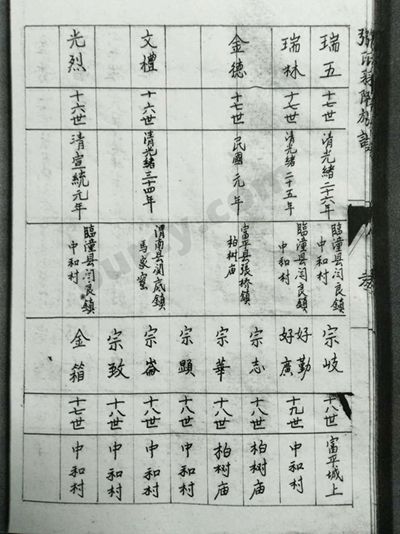 瑞五
十七世
清光緒二十六年
臨潼县閆良鎮
中和村
宗岐
十八世
富平城上
瑞林
十七世
清光緒二十五年
臨潼县閆良鎮
中和村
好勤
好廣
十九世
中和村
金德
十七世
民國元年
富平县張桥鎮
柏树庙
宗志
十八世
柏树庙
宗華
十八世
柏树庙
文禮
十六世
清光緒三十四年
渭南县閆底鎮
馬家寨
宗顯
十八世
中和村
宗崙
十八世
中和村
宗致
十八世
中和村
光烈
十六世
清宣統元年
臨潼县閆良鎮
中和村
金箱
十七世
中和村